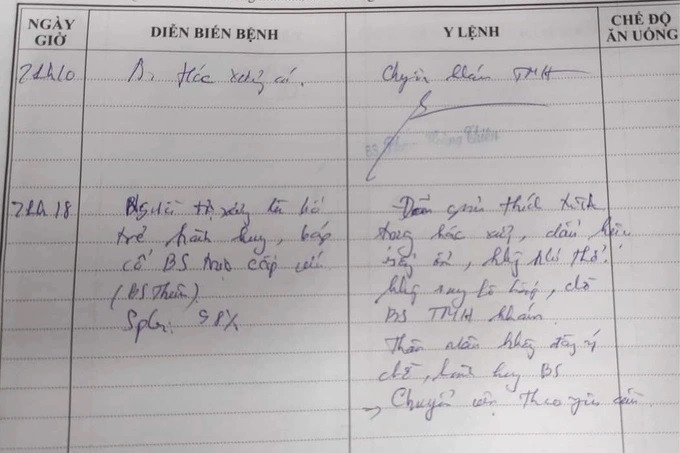 NGÀY GIỜ
DIỄN BIẾN BỆNH
Y LỆNH
CHẾ ĐỘ ĂN UỐNG
21h10
Δ, Hóc xương cá.
Chuyển khám TMH
BS
21h18
Người nhà
trẻ hành hung, bóp
cổ BS trực cấp cứu
(BS Thiện).
SpO2: 98%
Đã giải thích tình
trạng hóc xương, dấu hiệu
ổn, không khó thở,
không suy hô hấp, chờ
BS TMH khám.
Thân nhân không đồng ý
chờ, hành hung BS
→ Chuyển viện theo yêu cầu.